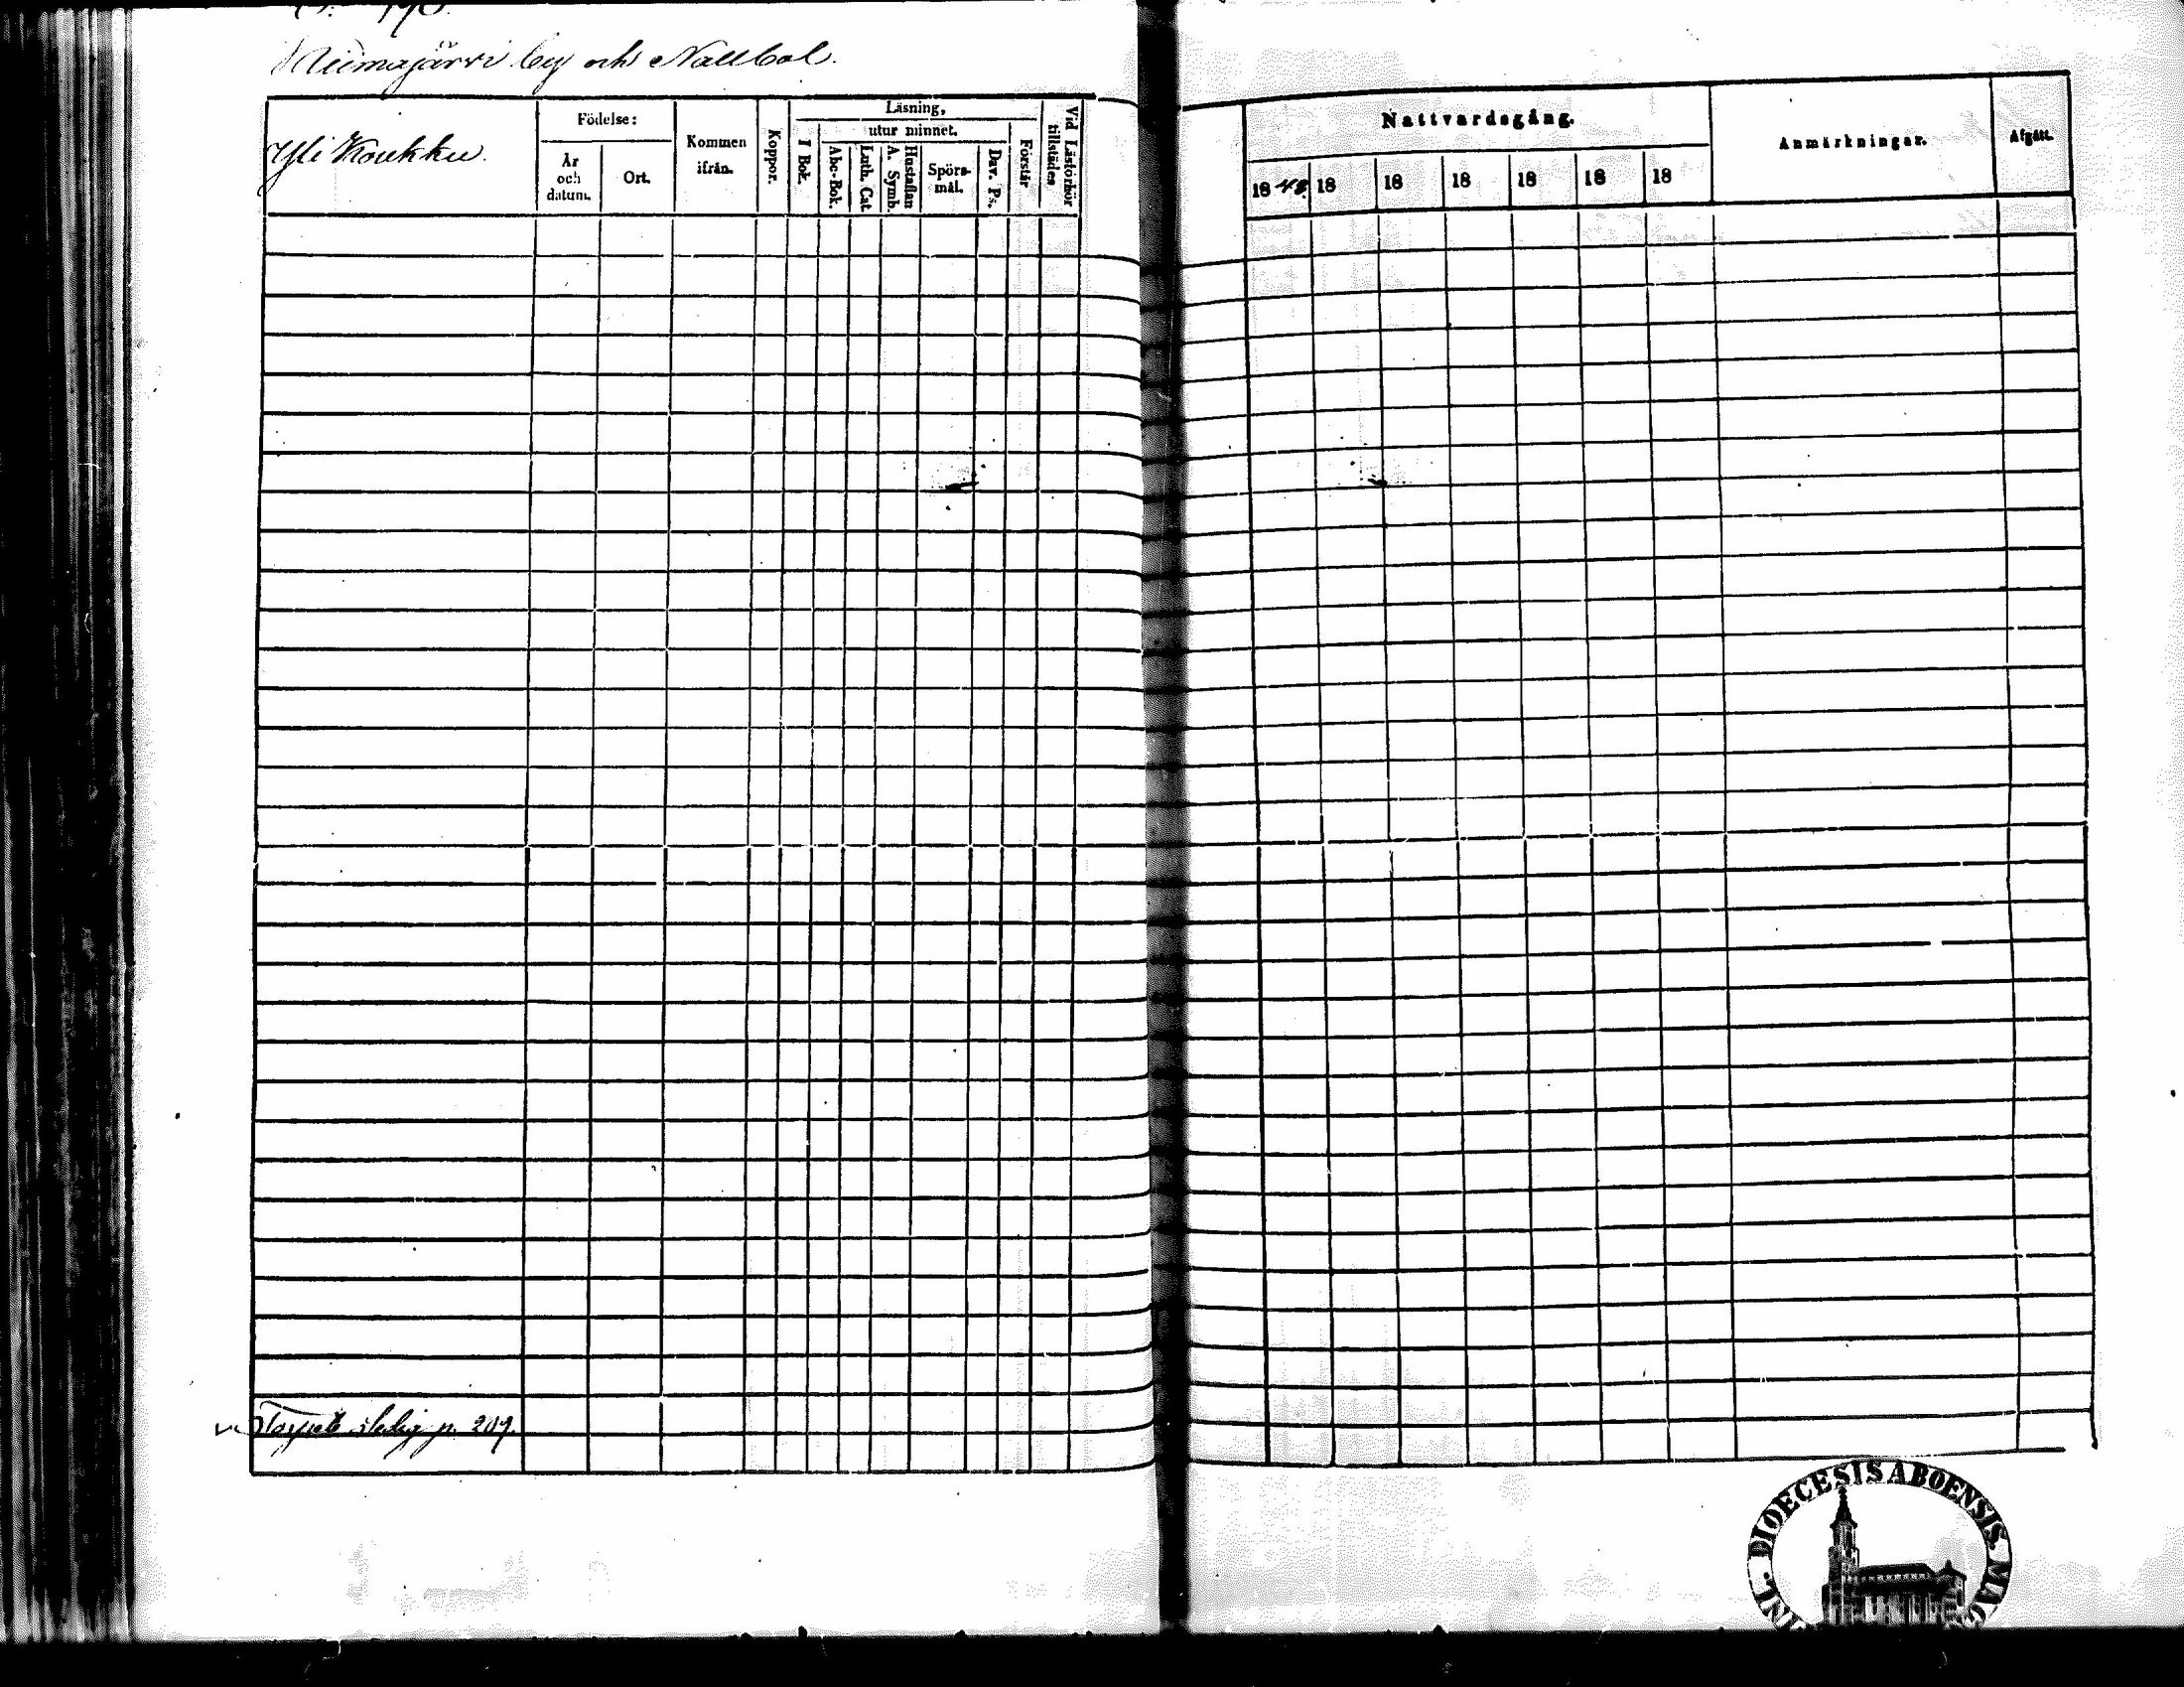 by och Nallbol.
Yli Koukku.
Födelse:
År och datum.
Ort.
Kommen ifrån.
Koppor.
Läsning,
I Bok.
utur minnet.
Abc-Bok.
Luth. Cat.
Hustaflan A. Symb.
Spörs-mål.
Dav. Ps.
Förstår
Vid Läsförhör tillstädes
Nattvardsgång.
1848. 18 18 18 18 18 18
Anmärkningar.
Afgått.
p. 207.
DIOECESIS ABOENSIS.